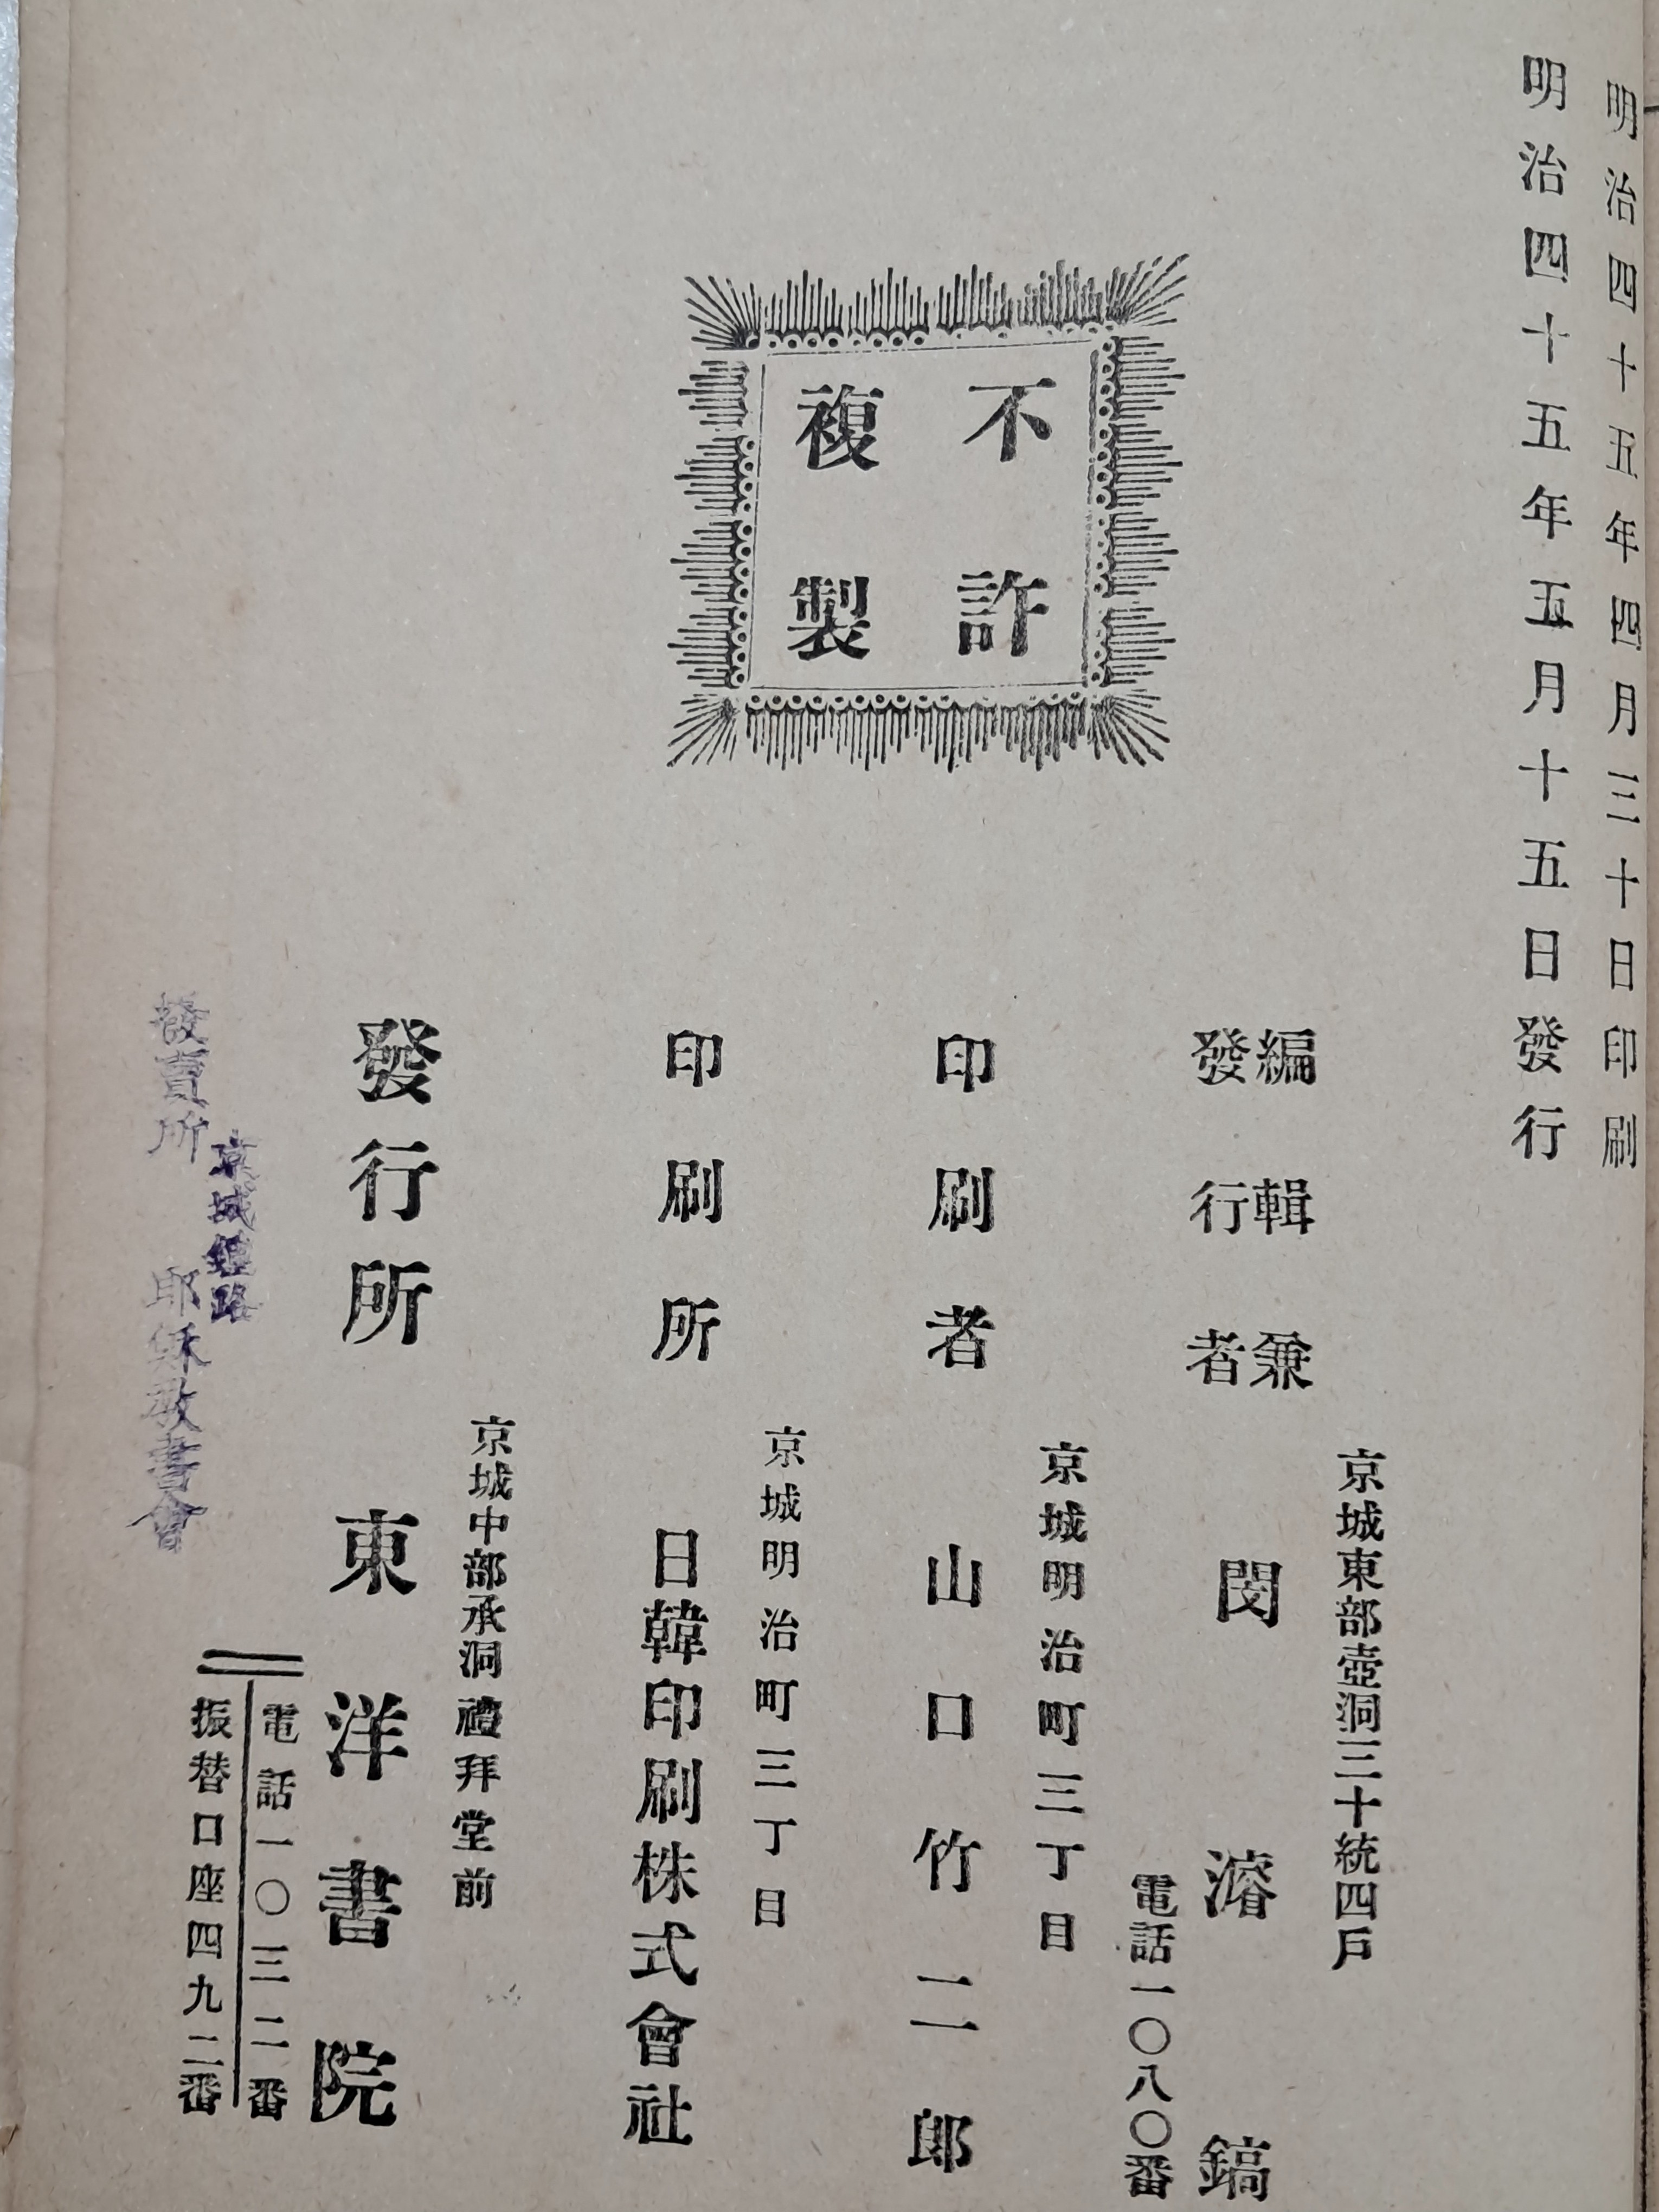 明治四十五年四月三十日印刷
明治四十五年五月十五日發行
不許
複製
京城東部壺洞三十統四戶
編輯兼
發行者
閔濬鎬
電話一〇八〇番
京城明治町三丁目
印刷者 山口竹二郎
京城明治町三丁目
印刷所 日韓印刷株式會社
京城中部承洞禮拜堂前
發行所 東洋書院
電話一〇三二番
振替口座四九二番
京城鐘路
發賣所 耶穌敎書會